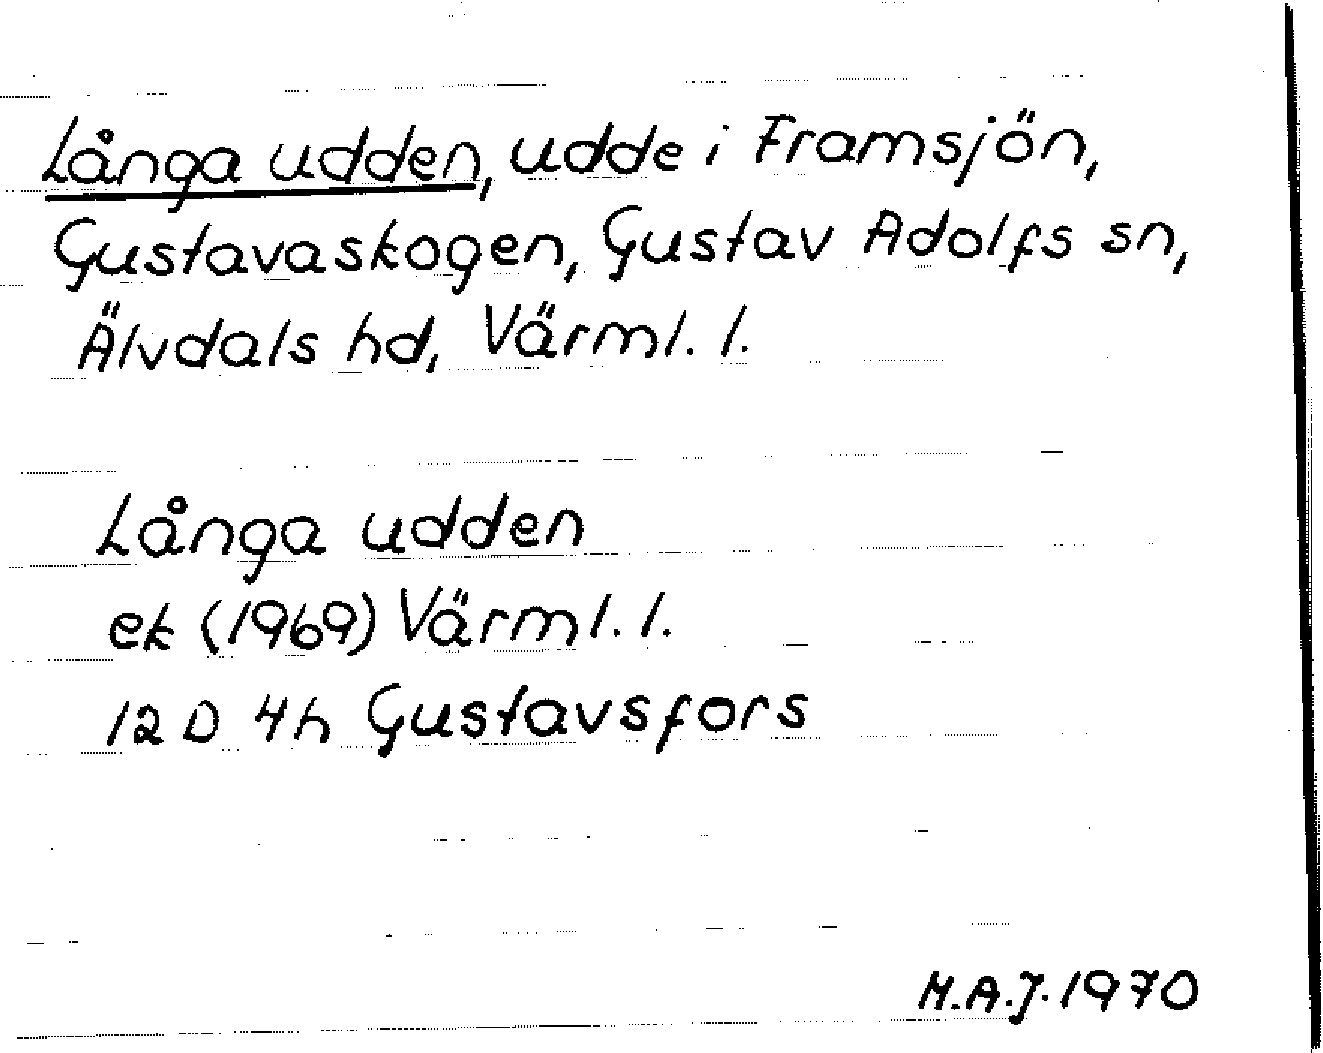 Långa udden, udde i Framsjön,
Gustavaskogen, Gustav Adolfs sn,
Älvdals hd, Värml. l.
Långa udden
ek (1969) Värml. l.
12 D 4h Gustavsfors
M.A.J. 1970